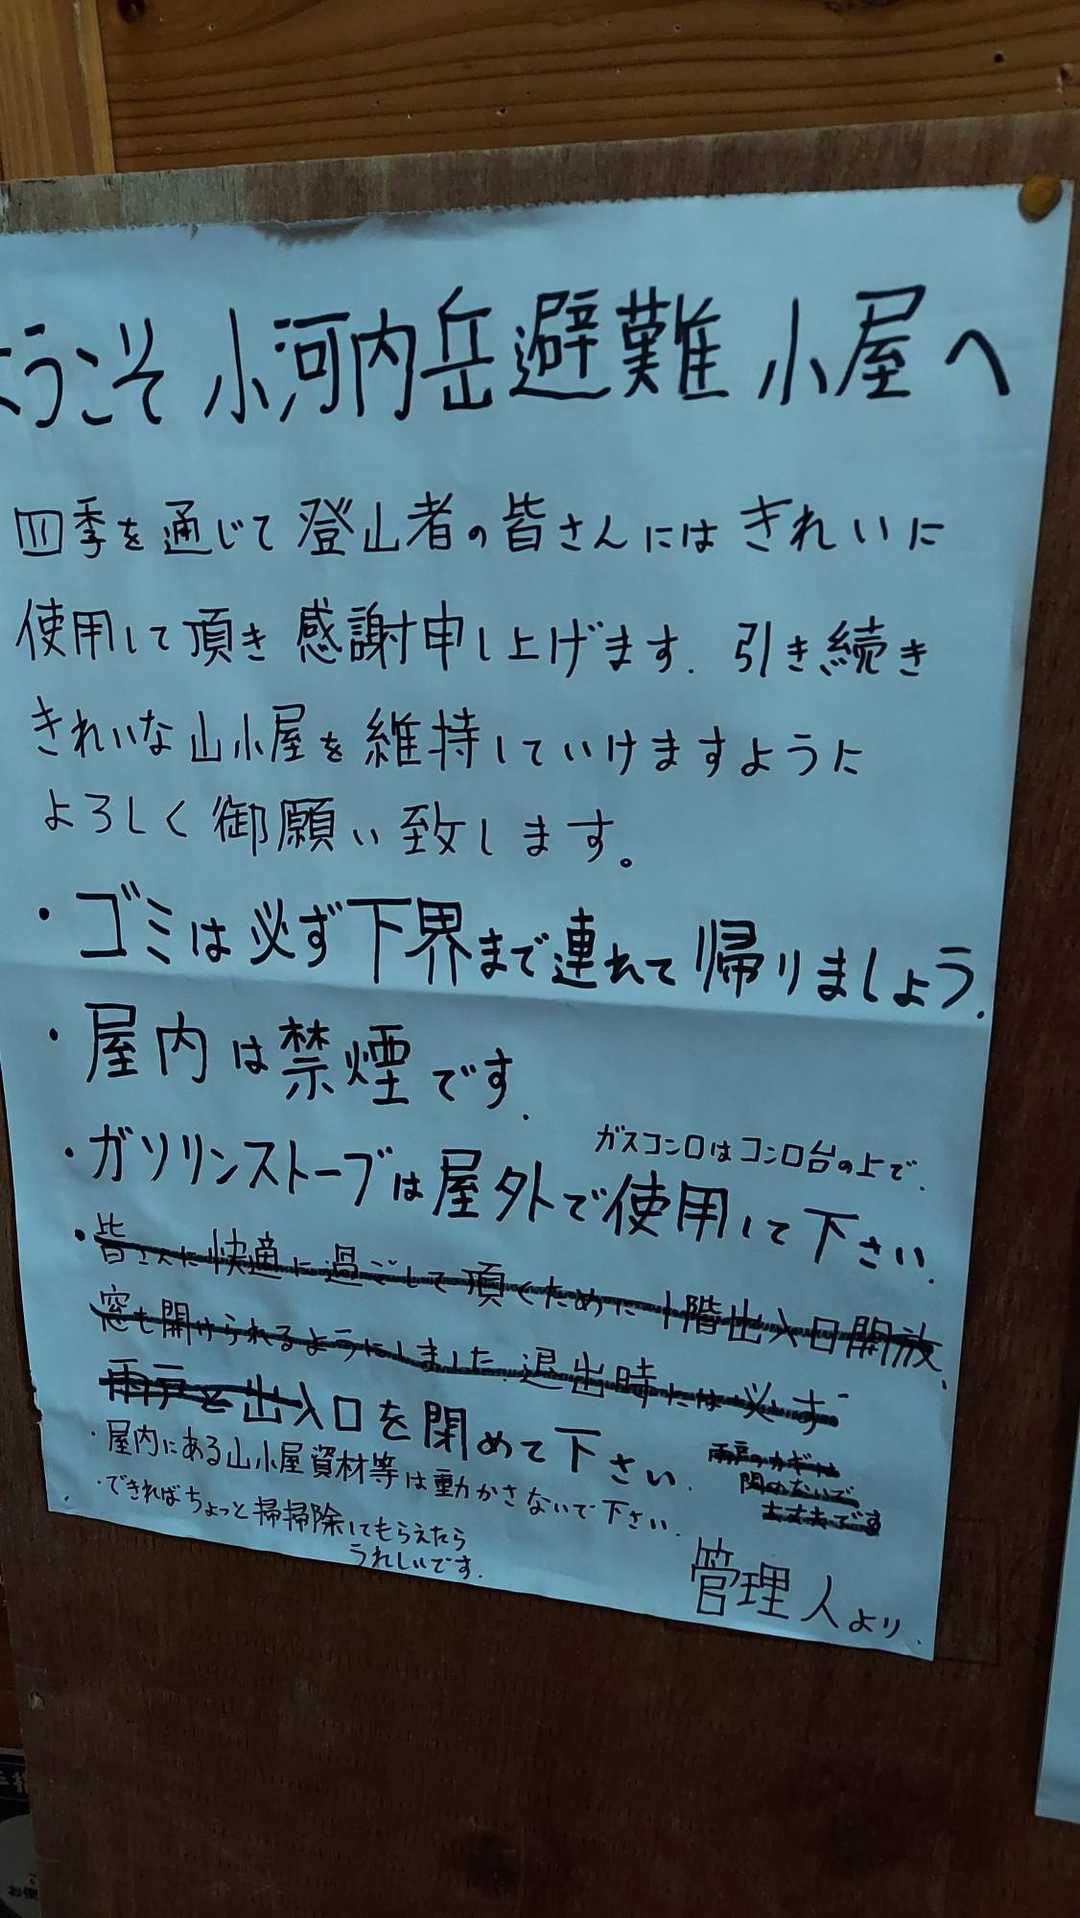 ようこそ 小河内岳避難小屋へ
四季を通じて登山者の皆さんにはきれいに
使用して頂き感謝申し上げます. 引き続き
きれいな山小屋を維持していけますように
よろしく御願い致します。
・ゴミは必ず下界まで連れて帰りましょう.
・屋内は禁煙です.
ガスコンロはコンロ台の上で.
・ガソリンストーブは屋外で使用して下さい.
・皆さんに快適に過ごして頂くために1階出入口開放、
窓も開けられるようにしました. 退出時には必ず
雨戸と出入口を閉めて下さい.
雨戸のカギは
閉めないで
大丈夫です
・屋内にある山小屋資材等は動かさないで下さい.
・できればちょっと掃掃除してもらえたら
うれしいです.
管理人より.